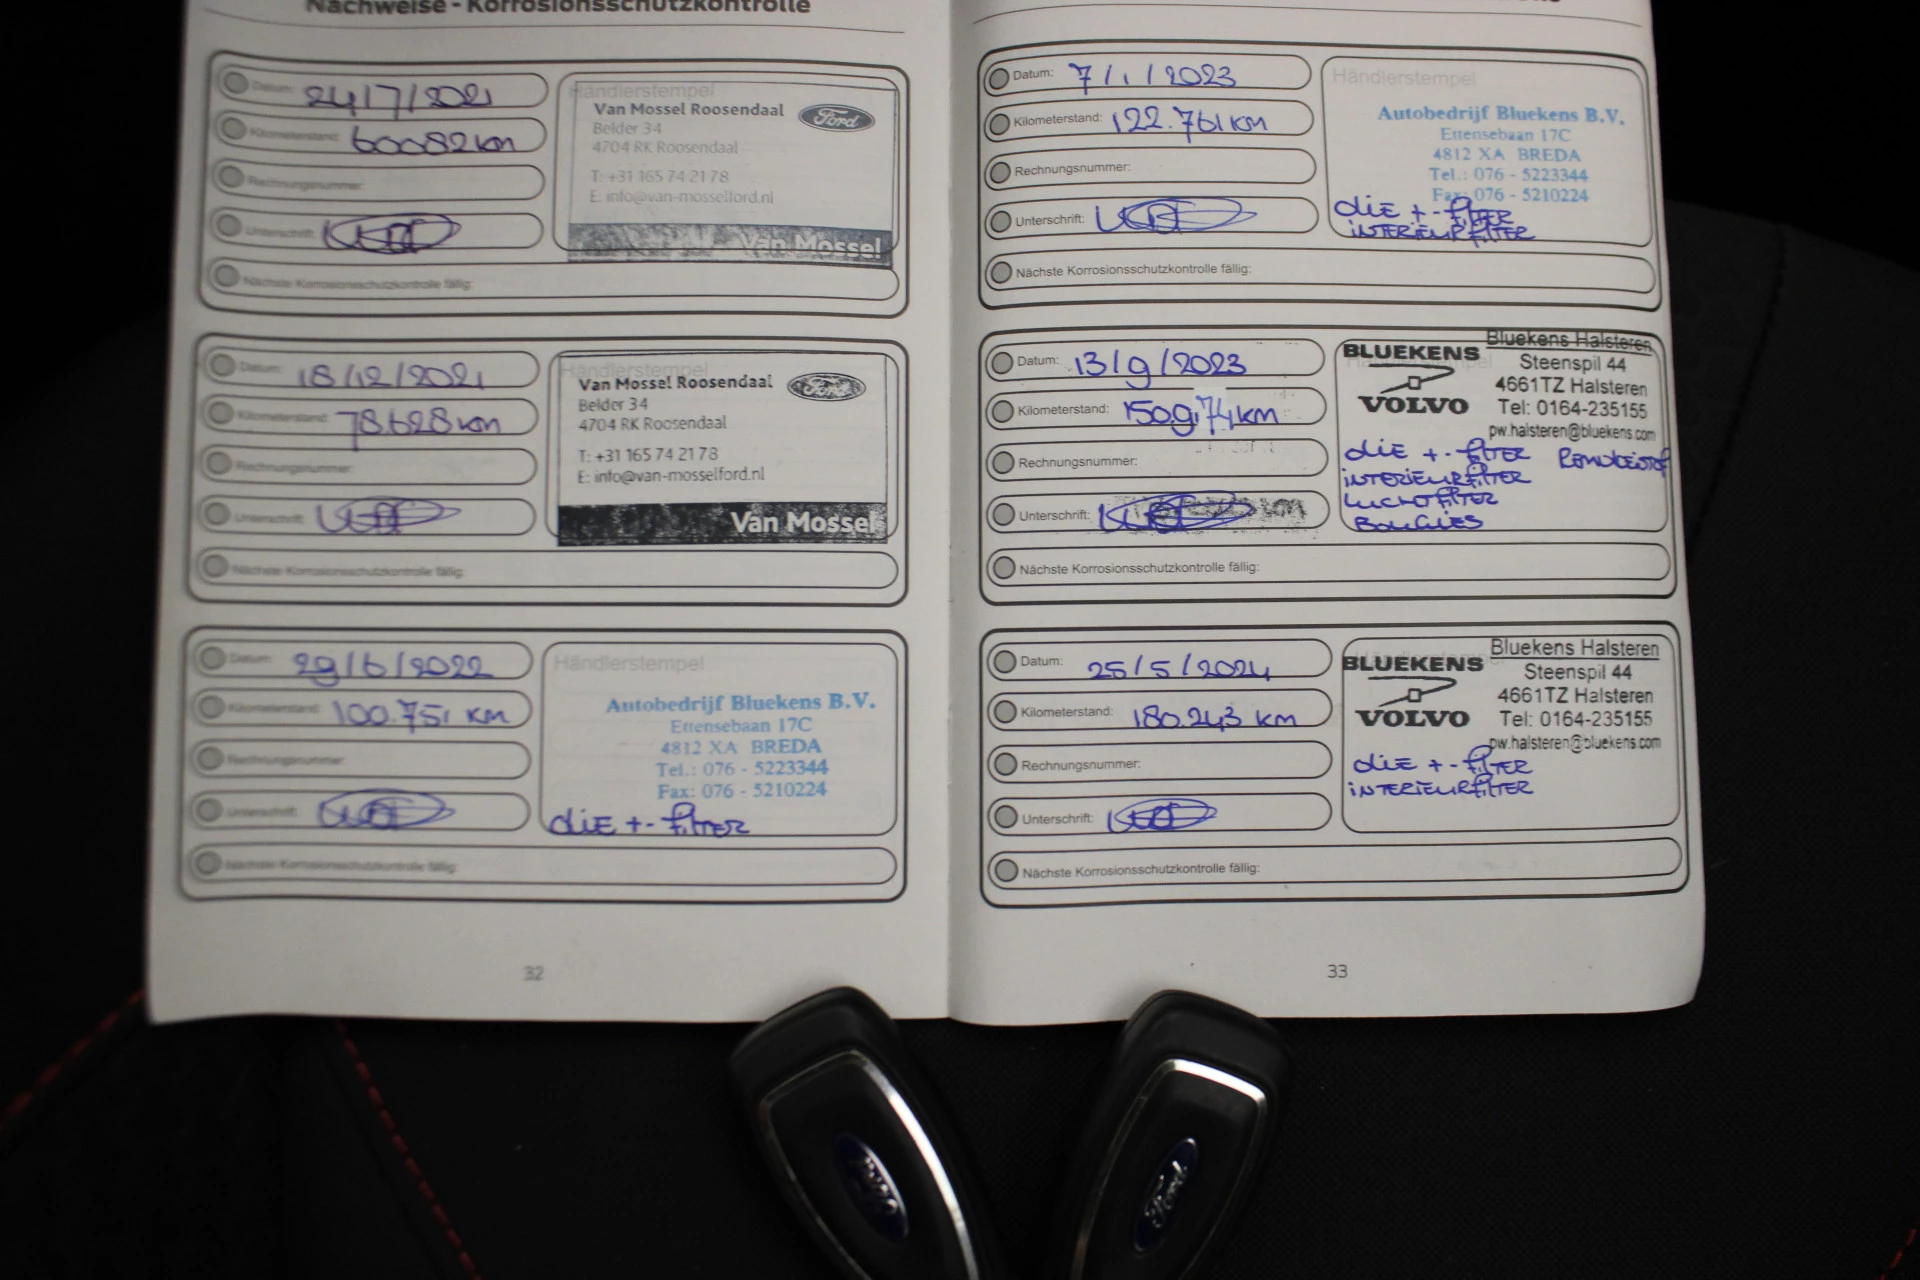 Nachweise - Korrosionsschutzkontrolle
Datum: 24/7/2021
Kilometerstand: 60082 km
Rechnungsnummer:
Unterschrift:
Nächste Korrosionsschutzkontrolle fällig:
Händlerstempel
Van Mossel Roosendaal
Ford
Belder 34
4704 RK Roosendaal
T: +31 165 74 21 78
E: info@van-mosselford.nl
Van Mossel
Datum: 18/12/2021
Kilometerstand: 78.628 km
Rechnungsnummer:
Unterschrift:
Nächste Korrosionsschutzkontrolle fällig:
Händlerstempel
Van Mossel Roosendaal
Ford
Belder 34
4704 RK Roosendaal
T: +31 165 74 21 78
E: info@van-mosselford.nl
Van Mossel
Datum: 29/6/2022
Kilometerstand: 100.751 KM
Rechnungsnummer:
Unterschrift:
Nächste Korrosionsschutzkontrolle fällig:
Händlerstempel
Autobedrijf Bluekens B.V.
Ettensebaan 17C
4812 XA BREDA
Tel.: 076 - 5223344
Fax: 076 - 5210224
OLIE +- FILTER
32
Datum: 7/1/2023
Kilometerstand: 122.761 KM
Rechnungsnummer:
Unterschrift:
Nächste Korrosionsschutzkontrolle fällig:
Händlerstempel
Autobedrijf Bluekens B.V.
Ettensebaan 17C
4812 XA BREDA
Tel.: 076 - 5223344
Fax: 076 - 5210224
OLIE +- FILTER
INTERIEURFILTER
Datum: 13/9/2023
Kilometerstand: 150.974 km
Rechnungsnummer:
Unterschrift:
Nächste Korrosionsschutzkontrolle fällig:
BLUEKENS
VOLVO
Bluekens Halsteren
Steenspil 44
4661TZ Halsteren
Tel: 0164-235155
pw.halsteren@bluekens.com
OLIE +- FILTER REMVLOEISTOF
INTERIEURFILTER
LUCHTFILTER
BOUGIES
Datum: 25/5/2024
Kilometerstand: 180.243 KM
Rechnungsnummer:
Unterschrift:
Nächste Korrosionsschutzkontrolle fällig:
BLUEKENS
VOLVO
Bluekens Halsteren
Steenspil 44
4661TZ Halsteren
Tel: 0164-235155
pw.halsteren@bluekens.com
OLIE +- FILTER
INTERIEURFILTER
33
Ford
Ford